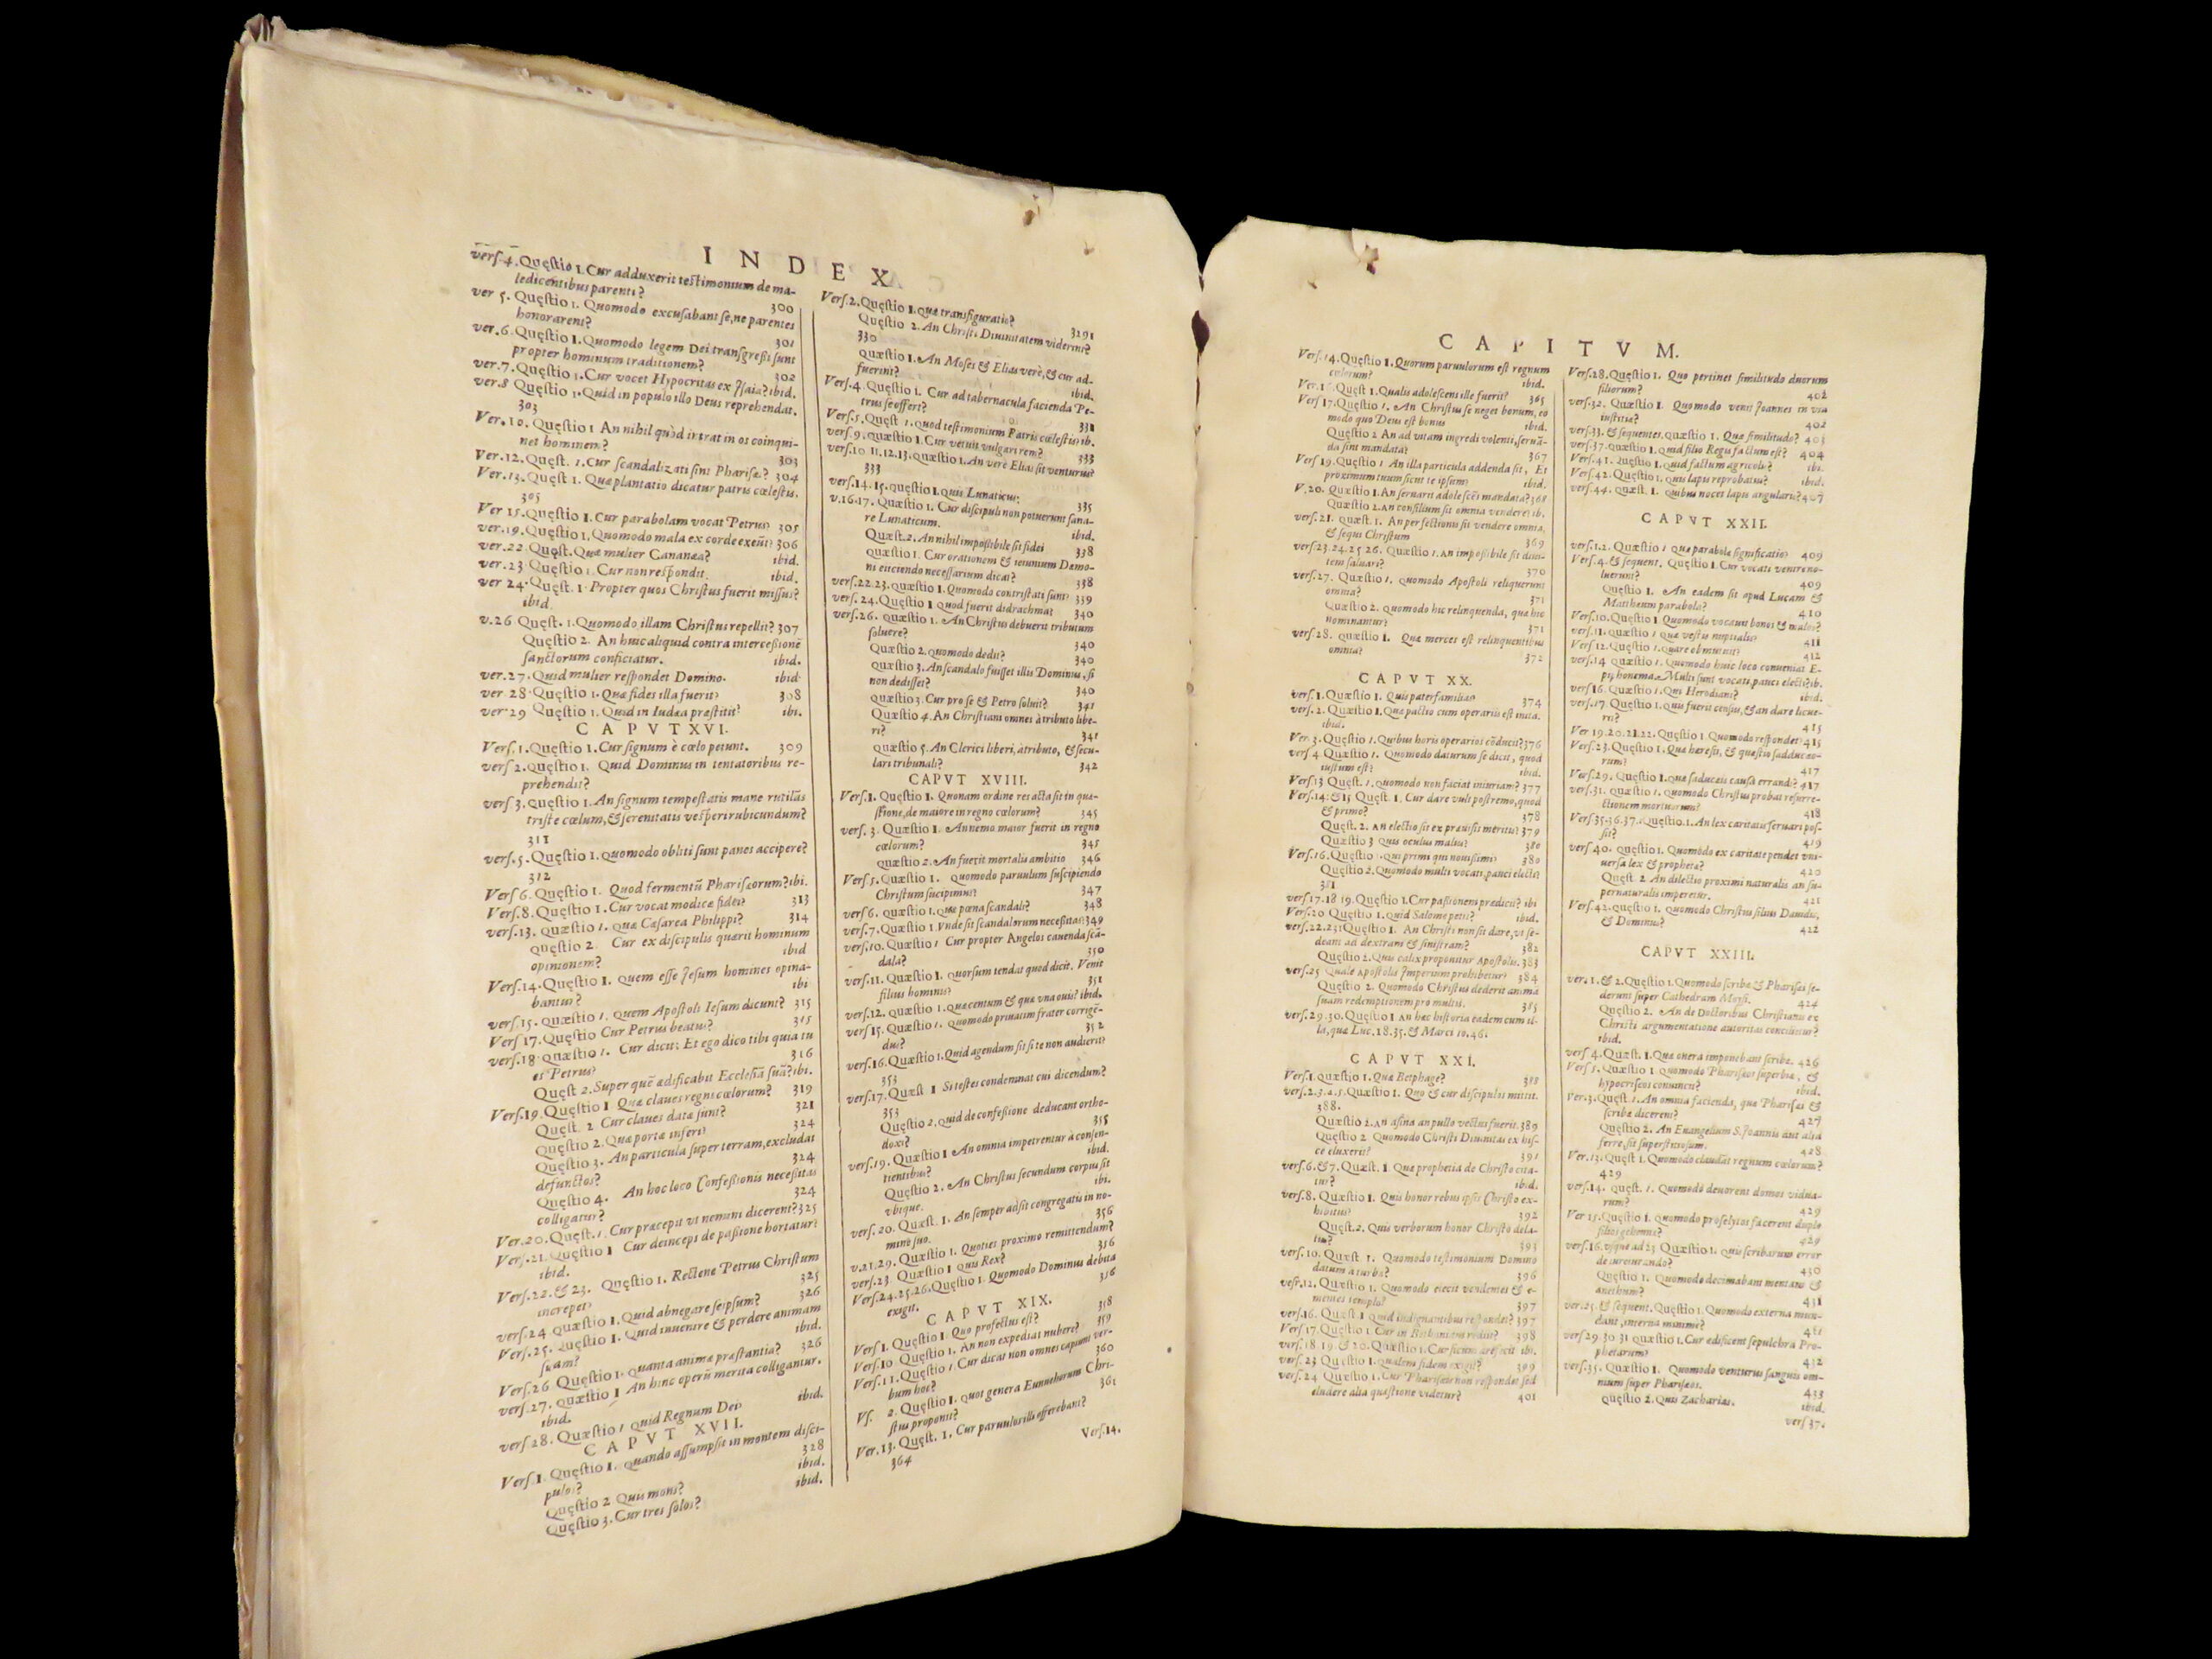 INDEX
vers.4. Quęstio 1. Cur adduxerit testimonium de ma-
ledicentibus parenti? 300
ver 5. Quęstio 1. Quomodo excusabant se, ne parentes
honorarent? 301
ver.6. Quęstio 1. Quomodo legem Dei transgreßi sunt
propter hominum traditionem? 302
ver.7. Quęstio 1. Cur vocet Hypocritas ex Isaia? ibid.
ver.8 Quęstio 1. Quid in populo illo Deus reprehendat.
303
Ver.10. Quęstio 1 An nihil quod intrat in os coinqui-
net hominem? 303
Ver.12. Quęst. 1. Cur scandalizati sint Pharisæi? 304
Ver.13. Quęst 1. Quæ plantatio dicatur patris cœlestis.
305
Ver 15. Quęstio 1. Cur parabolam vocat Petrus? 305
ver.19. Quęstio 1. Quomodo mala ex corde exeũt? 306
ver.22 Quęst. Quæ mulier Cananæa? ibid.
ver.23 Quęstio 1. Cur non respondit. ibid.
ver 24. Quęst. 1. Propter quos Christus fuerit missus?
ibid.
v.26 Quęst. 1. Quomodo illam Christus repellit? 307
Quęstio 2. An hinc aliquid contra interceßionē
sanctorum conficiatur. ibid.
ver.27. Quid mulier respondet Domino. ibid
ver 28. Quęstio 1. Quæ fides illa fuerit? 308
ver 29 Quęstio 1. Quid in Iudæa præstitit? ibi.
CAPVT XVI.
Vers.1. Quęstio 1. Cur signum è cœlo petunt. 309
vers 2. Quęstio 1. Quid Dominus in tentatoribus re-
prehendit?
vers 3. Quęstio 1. An signum tempestatis mane rutilās
triste cœlum, & serenitatis vesperi rubicundum?
311
vers.5. Quęstio 1. quomodo obliti sunt panes accipere?
312
Vers 6. Quęstio 1. Quod fermentū Pharisæorum? ibi.
Vers.8. Quęstio 1. Cur vocat modicæ fidei? 313
vers.13. quæstio 1. Quæ Cæsarea Philippi? 314
quęstio 2. Cur ex discipulis quærit hominum
opinionem? ibid
Vers.14. Quęstio 1. quem esse Jesum homines opina-
bantur? ibi
vers.15. quæstio 1. Quem Apostoli Iesum dicunt? 315
Vers 17. Quęstio Cur Petrus beatus? 315
vers.18 quæstio 1. Cur dicit; Et ego dico tibi quia tu
es Petrus? 316
Quęst 2. Super quē ædificabit Ecclesiā suā? ibi.
Vers.19. Quęstio 1 Quæ claues regni cœlorum? 319
Quęst. 2 Cur claues datæ sunt? 321
Quęstio 2. Quæ portæ inferi? 324
Quęstio 3. An particula super terram, excludat
defunctos? 324
Quęstio 4. An hoc loco Confeßionis neceßitas
colligatur? 324
Ver.20. Quęst. 1. Cur præcepit vt nemini dicerent? 325
Vers.21. Quęstio 1 Cur deinceps de paßione hortatur?
ibid.
Vers.22. & 23. Quęstio 1. Rectene Petrus Christum
increpet? 325
vers.24 quæstio 1. Quid abnegare seipsum? 326
Vers.25. quęstio 1. Quid inuenire & perdere animam
suam? ibid.
Vers.26 Quęstio 1. quanta animæ præstantia? 326
vers.27. quæstio 1 An hinc operū merita colligantur.
ibid.
vers 28. Quæstio 1 quid Regnum Dei? ibid.
CAPVT XVII.
Vers 1. Quęstio 1. quando assumpsit in montem disci-
pulos? 328
Quęstio 2 Quis mons? ibid.
Quęstio 3. Cur tres solos? ibid.
Vers.2. Quęstio 1. quæ transfiguratio? 3291
Quęstio 2. An Christi Diuinitatem viderint?
330
quæstio 1. An Moses & Elias verè, & cur ad-
fuerint? ibid.
Vers.4. Quęstio 1. Cur ad tabernacula facienda Pe-
trus se offert? 331
Vers.5. Quęst 1. quod testimonium Patris cœlestis? ib.
vers.9. quæstio 1. Cur vetuit vulgari rem? 333
vers.10 11.12.13. quæstio 1. An verè Elias sit venturus?
333
vers.14.15. quęstio 1. quis Lunaticus. 335
v.16.17. Quæstio 1. Cur discipuli non potuerunt sana-
re Lunaticum. ibid.
Quæst. 2. An nihil impoßibile sit fidei 338
quæstio 1. Cur orationem & ieiunium Dæmo-
ni eiiciendo necessarium dicat? 338
vers.22.23. quæstio 1. Quomodo contristati sunt? 339
vers. 24. Quęstio 1 quod fuerit didrachma? 340
vers.26. quæstio 1. An Christus debuerit tributum
soluere? 340
Quæstio 2. quomodo dedit? 340
quæstio 3. An scandalo fuisset illis Dominus, si
non dedisset? 340
quæstio 3. Cur pro se & Petro soluit? 341
Quæstio 4. An Christiani omnes à tributo libe-
ri? 341
quæstio 5. An Clerici liberi, à tributo, & secu-
lari tribunali? 342
CAPVT XVIII.
Vers.1. Quęstio 1. Quonam ordine res acta sit in quæ-
stione, de maiore in regno cœlorum? 345
vers. 3. Quæstio 1. An nemo maior fuerit in regno
cœlorum? 345
quæstio 2. An fuerit mortalis ambitio 346
Vers 5. Quæstio 1. Quomodo paruulum suscipiendo
Christum sucipimus? 347
vers 6. quæstio 1. Quæ pœna scandali? 348
vers.7. Quęstio 1. Vnde sit scandalorum neceßitas? 349
vers.10. Quæstio 1 Cur propter Angelos cauenda scā-
dala? 350
vers.11. Quæstio 1. quorsum tendat quod dicit. Venit
filius hominis? 351
vers.12. quæstio 1. quæ centum & quæ vna ouis? ibid.
vers 15. Quæstio 1. quomodo priuatim frater corrigē-
dus? 352
vers.16. Quæstio 1. Quid agendum sit si te non audierit?
353
vers.17. Quæst 1 Si testes condemnat cui dicendum?
353
Quęstio 2. quid de confeßione deducant ortho-
doxi? 355
vers.19. Quæstio 1 An omnia impetrentur à consen-
tientibus? ibid.
Quęstio 2. An Christus secundum corpus sit
vbique. ibi.
vers. 20. Quæst. 1. An semper adsit congregatis in no-
mine suo. 356
v.21.29. Quæstio 1. Quoties proximo remittendum?
vers.23. Quæstio 1 quis Rex? 356
Vers.24.25.26. Quęstio 1. Quomodo Dominus debita
exigit. 356
CAPVT XIX.
Vers 1. Quęstio 1. Quo profectus est? 358
Vers.10 Quęstio 1. An non expediat nubere? 359
Vers.11. Quęstio 1. Cur dicat non omnes capiunt ver-
bum hoc? 360
Vs. 2. Quęstio 1. quot genera Eunuchorum Chri-
stus proponit? 361
Ver.13. Quęst. 1. Cur paruulos illi offerebant?
364
Vers.14.
CAPITVM.
Vers.14. Quęstio 1. Quorum paruulorum est regnum
cælorum? ibid.
Quęst 1. Qualis adolescens ille fuerit? 365
Vers 17. Quęstio 1. An Christus se neget bonum, eo
modo quo Deus est bonus ibid.
Quęstio 2 An ad vitam ingredi volenti, seruā-
da sint mandata? 367
Vers 19. Quęstio 1 An illa particula addenda sit, Et
proximum tuum sicut te ipsum? ibid.
V.20. Quæstio 1. An seruarit adolescēs mandata? 368
Quæstio 2. An consilium sit omnia vendere? ib.
vers.21. Quæst. 1. An perfectionis sit vendere omnia,
& sequi Christum 369
vers.23.24.25 26. Quæstio 1. An impoßibile sit diui-
tem saluari? 370
vers.27. Quæstio 1. Quomodo Apostoli reliquerunt
omnia? 371
Quæstio 2. quomodo hic relinquenda, quæ hic
nominantur? 371
vers 28. quæstio 1. Quæ merces est relinquentibus
omnia? 372
CAPVT XX.
vers.1. Quæstio 1. Quis paterfamilias 374
vers.2. Quæstio 1. Quæ pactio cum operariis est inita.
ibid.
Ver.3. Quęstio 1. Quibus horis operarios cōducit? 376
vers 4 Quæstio 1. Quomodo daturum se dicit, quod
iustum est? ibid.
Vers 13 Quęst. 1. quomodo non faciat iniuriam? 377
Vers.14. & 15 Quęst 1. Cur dare vult postremo, quod
& primo? 378
Quęst. 2. An electio sit ex præuisis meritis? 379
Quęstio 3 Quis oculus malus? 380
Vers.16. Quęstio qui primi qui nouißimi? 380
Quęstio 2. Quomodo multi vocati, pauci electi?
381
vers 17.18 19. Quęstio 1. Cur paßionem prædicit? ibi
Vers.20 Quęstio 1. Quid Salome petit? ibid.
vers.22.23. Quęstio 1. An Christi non sit dare, vt se-
deant ad dextram & sinistram? 382
Quęstio 2. Quis calix proponitur Apostolis. 383
vers.25 Quale Apostolis Imperium prohibetur? 384
Quęstio 2. Quomodo Christus dederit animā
suam redemptionem pro multis. 385
vers.29.30. Quęstio 1 An hæc historia eadem cum il-
la, quæ Luc.18.35. & Marci 10.46.
CAPVT XXI.
Vers.1. Quæstio 1. Quæ Betphage? 388
Quæstio 1. Quo & cur discipulos mittit.
388.
Quæstio 2. An asina an pullo vectus fuerit. 389
Quęstio 2 Quomodo Christi Diuinitas ex his-
ce eluxerit? 391
vers.6. & 7. Quæst. 1 Quæ prophetia de Christo cita-
tur? ibid.
vers.8. Quæstio 1. Quis honor rebus ipsis Christo ex-
hibitus? 392
Quęst. 2. Quis verborum honor Christo dela-
tus? 393
vers.10. Quæst 1. Quomodo testimonium Domino
datum à turba? 396
vesr.12. Quæstio 1. Quomodo eiecit vendentes & e-
mentes templo? 397
vers.16. Quęst.1 Quid indignantibus respondet? 397
Vers 17. Quęstio 1 Cur in Bethaniam rediit? 398
vers.18.19. & 20. Quæstio 1. Cur ficum arefecit ibi.
vers.23 Quęstio 1. Qualem fidem exigit? 399
vers.24 Quæstio 1. Cur Pharisæis non respondet sed
eludere alia quæstione videtur? 401
Vers.28. Quęstio 1. Quo pertinet similitudo duorum
filiorum? 402
vers.32. Quæstio 1. Quomodo venit Joannes in via
iustitiæ? 402
vers.33. & sequentes. quæstio 1. Quæ similitudo? 403
vers.37. Quæstio 1. quid filio Regis factum est? 404
Vers.41. Quęstio 1. quid factum agricolis? ibi.
Vers.42. Quęstio 1. quis lapis reprobatus? ibid.
vers.44. quæst. 1. Quibus nocet lapis angularis? 407
CAPVT XXII.
vers.1.2. Quæstio 1 Quæ parabolæ significatio? 409
Vers.4. & sequent. Quęstio 1. Cur vocati venire no-
luerunt? 409
Quęstio 1. An eadem sit apud Lucam &
Matthæum parabola? 410
Vers.10. Quęstio 1. Quomodo vocauit bonos & malos?
vers.11. quæstio 1 quæ vestis nuptialis? 411
Vers 12. Quęstio 1. quare obmutuit? 412
vers.14 quæstio 1. Quomodo huic loco conueniat E-
Multi sunt vocati, pauci electi? ib.
vers 16. Quæstio 1. Qui Herodiani? ibid.
vers.17. Quęstio 1. quis fuerit census, & an dare licue-
rit? 415
Ver 19.20.21.22. Quęstio 1 Quomodo respondet? 415
Vers.23. Quęstio 1. Quæ hæresis, & quæstio sadducæo-
rum? 417
Vers.29. Quęstio 1. quæ saducæis causa errandi? 417
vers.31. quæstio 1. quomodo Christus probat resurre-
ctionem mortuorum? 418
Vers 35.36.37. Quęstio 1. An lex caritatis seruari pos-
sit? 419
vers 40. Quęstio 1. Quomodo ex caritate pendet vni-
uersa lex & prophetæ? 420
Quęst. 2 An dilectio proximi naturalis an su-
pernaturalis imperetur. 421
Vers.42. Quęstio 1. Quomodo Christus filius Dauidis,
& Dominus? 422
CAPVT XXIII.
ver. 1. & 2. Quęstio 1. Quomodo scribæ & Pharisæi se-
derunt super Cathedram Moysi. 424
Quęstio 2. An de Doctoribus Christianis ex
Christi argumentatione autoritas concluditur?
ibid.
vers 4. Quæst. 1. Quæ onera imponebant scribæ. 426
Vers 5. Quæstio 1 Quomodo Pharisæos superbiæ, &
hypocriseos conuincit? ibid.
Ver.3. Quęst. 1. An omnia facienda, quæ Pharisæi &
scribæ dicerent? 427
Quęstio 2. An Euangelium S. Joannis aut alia
ferre, sit superstitiosum. 428
Ver.13. Quęst 1. Quomodo claudāt regnum cælorum?
429
vers.14. Quęst. 1. Quomodo deuorent domos vidua-
rum? 429
Ver 15. Quęstio 1. Quomodo proselytos facerent duplo
filios gehennæ? 429
vers.16. vsque ad 23 Quæstio 1. quis scribarum error
de iureiurando? 430
Quæstio 1. Quomodo decimabant mentam &
anethum? 431
ver.25. & sequent. Quęstio 1. Quomodo externa mun-
dant, interna minime? 431
vers 29.30 31 quæstio 1. Cur ædificent sepulchra Pro-
phetarum? 432
vers.35. Quæstio 1. Quomodo venturus sanguis om-
nium super Pharisæos. 433
Quęstio 2. Quis Zacharias. ibid.
vers 37.